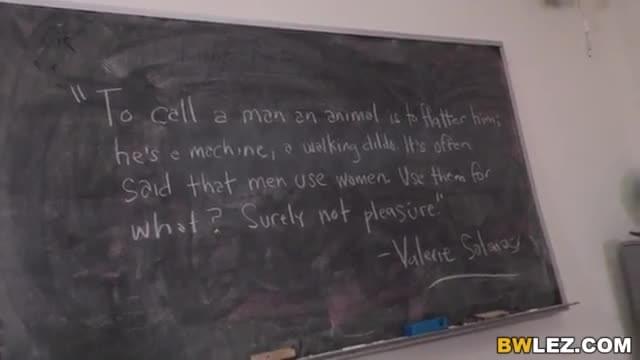 "To call a man an animal is to flatter him;
he's a machine, a walking dildo. It's often
said that men use women. Use them for
what? Surely not pleasure."
- Valerie Solanas
BWLEZ.COM